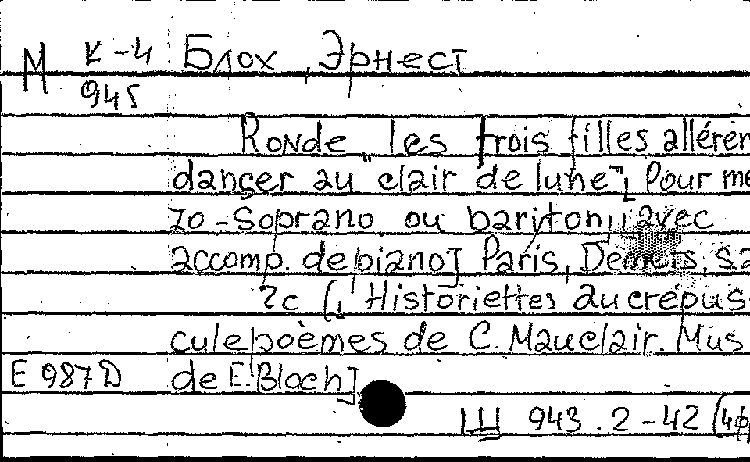 М К-4 Блох, Эрнест
945
Ronde "les trois filles alléren
danser au clair de lune"[Pour me
zo-soprano ou baritoni avec
accomp. de piano] Paris, Demets, s.a
2c ([Historiettes au crépus
cule poèmes de C. Mauclair. Mus
E 987D de E. Bloch]
Ш 943.2-42 (4ф